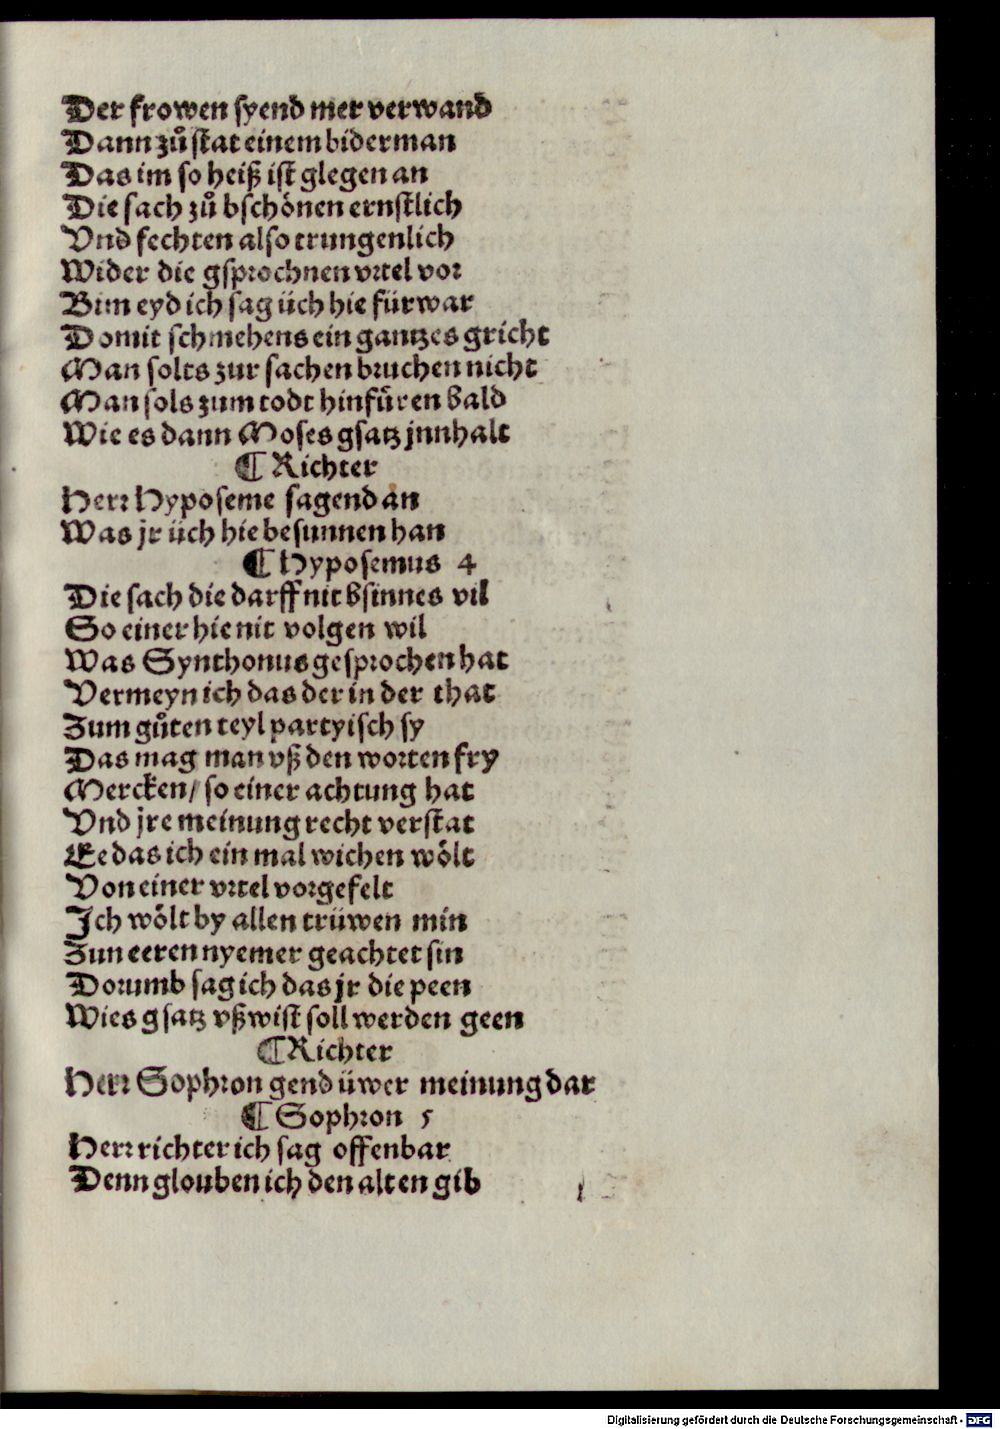 Der frowen syend mer verwand
Dann zuͦ stat einem biderman
Das im so heiß ist glegen an
Die sach zuͦ bschoͤnen ernstlich
Vnd fechten also trungenlich
Wider die gsprochnen vrtel vor
Bim eyd ich sag üch hie fürwar
Domit schmehens ein gantzes gricht
Man solts zur sachen bruchen nicht
Man sols zum todt hinfuͤren bald
Wie es dann Moses gsatz jnnhalt
¶ Richter
Herr Hyposeme sagend an
Was jr üch hie besunnen han
¶ Hyposemus 4
Die sach die darff nit bsinnes vil
So einer hie nit volgen wil
Was Synthonus gesprochen hat
Vermeyn ich das der in der that
Zum guͦten teyl partyisch sy
Das mag man vß den worten fry
Mercken / so einer achtung hat
Vnd jre meinung recht verstat
Ee das ich ein mal wichen woͤlt
Von einer vrtel vorgefelt
Ich woͤlt by allen trüwen min
Zun eeren nyemer geachtet sin
Dorumb sag ich das jr die peen
Wies gsatz vßwist soll werden geen
¶ Richter
Herr Sophron gend üwer meinung dar
¶ Sophron 5
Herr richter ich sag offenbar
Denn glouben ich den alten gib
Digitalisierung gefördert durch die Deutsche Forschungsgemeinschaft - DFG